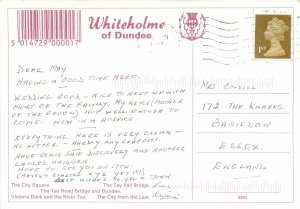 Whiteholme
of Dundee
5 014729 000017
1ST
DEAR MAY
HAVING A GOOD TIME HERE.
WEDDING GOOD - NICE TO MEET UP WITH
MOST OF THE FAMILY. MY NIECE (MOTHER
OF THE GROOM) NOT WELL ENOUGH TO
COME. NOW IN A HOSPICE
EVERYTHING HERE IS VERY CLEAN -
NO LITTER - HARDLY ANY GRAFFITI.
HAVE SEEN SHIP DISCOVERY AND ANOTHER
CALLED UNICORN.
HOPE YOU ON 17TH.
JOHN.
MRS COLVILL
172 THE KNARES
BASILDON
ESSEX.
ENGLAND
The City Square.
The Tay Rail Bridge.
The Tay Road Bridge and Dundee.
Victoria Dock and the River Tay.
The City from the Law.